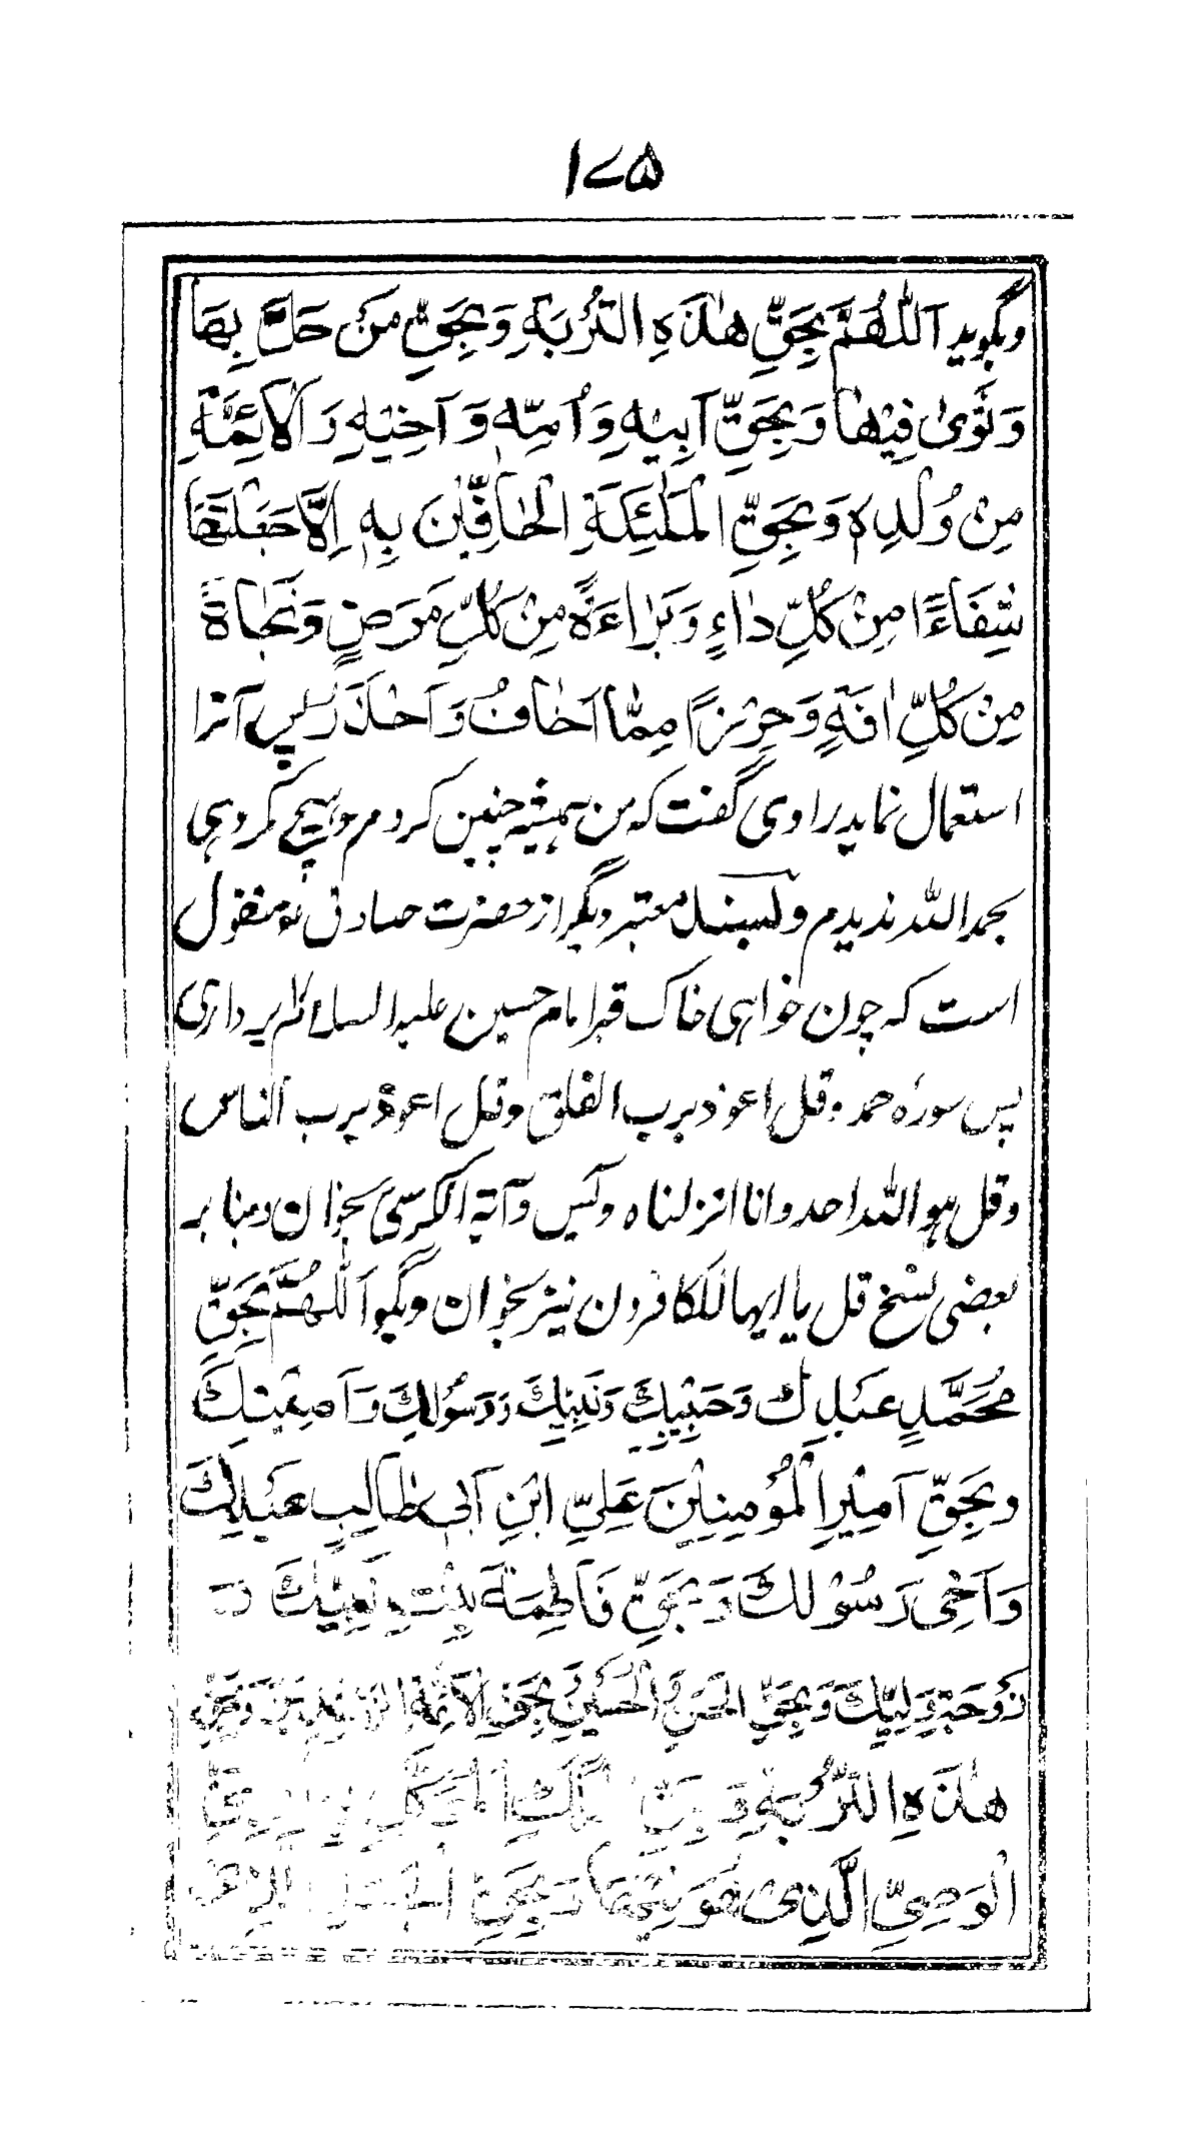 ۱۷۵
وبگوید اَللّٰهُمَّ بِحَقِّ هٰذِهِ التُّرْبَةِ وَبِحَقِّ مَنْ حَلَّ بِهَا
وَثَوٰى فِيْهَا وَبِحَقِّ اَبِيْهِ وَاُمِّهٖ وَاَخِيْهِ وَالْاَئِمَّةِ
مِنْ وُلْدِهٖ وَبِحَقِّ الْمَلٰئِكَةِ الْحٰافِّيْنَ بِهٖ اِلَّا جَعَلْتَهَا
شِفَاءً مِنْ كُلِّ دٰاءٍ وَبَرٰاءَةً مِنْ كُلِّ مَرَضٍ وَنَجٰاةً
مِنْ كُلِّ اٰفَةٍ وَحِرْزًا مِمَّا اَخٰافُ وَاَحْذَرُ پس آنرا
استعمال نماید راوی گفت که من همیشه چنین کردم وهیچ مکروهی
بحمد الله ندیدم وبسند معتبر دیگر از حضرت صادق ع منقول
است که چون خواهی خاک قبر امام حسین علیه السلام برداری
پس سورهٔ حمد وقل اعوذ برب الفلق وقل اعوذ برب الناس
وقل هو الله احد وانا انزلناه ویس وآیة الکرسی بخوان وبنا بر
بعضی نسخ قل یا ایها الکافرون نیز بخوان وبگو اَللّٰهُمَّ بِحَقِّ
مُحَمَّدٍ عَبْدِكَ وَحَبِيْبِكَ وَنَبِيِّكَ وَرَسُوْلِكَ وَاَمِيْنِكَ
وَبِحَقِّ اَمِيْرِ الْمُؤْمِنِيْنَ عَلِيِّ ابْنِ اَبِى طٰالِبٍ عَبْدِكَ
وَاَخِى رَسُوْلِكَ وَبِحَقِّ فَاطِمَةَ بِنْتِ نَبِيِّكَ وَ
زَوْجَةِ وَلِيِّكَ وَبِحَقِّ الْحَسَنِ وَالْحُسَيْنِ بِحَقِّ الْاَئِمَّةِ الرَّاشِدِيْنَ وَبِحَقِّ
هٰذِهِ التُّرْبَةِ وَبِحَقِّ الْمُوَكَّلِ بِهَا وَبِحَقِّ
الْوَصِيِّ الَّذِى هُوَ فِيْهَا وَبِحَقِّ الْجَسَدِ الَّذِى